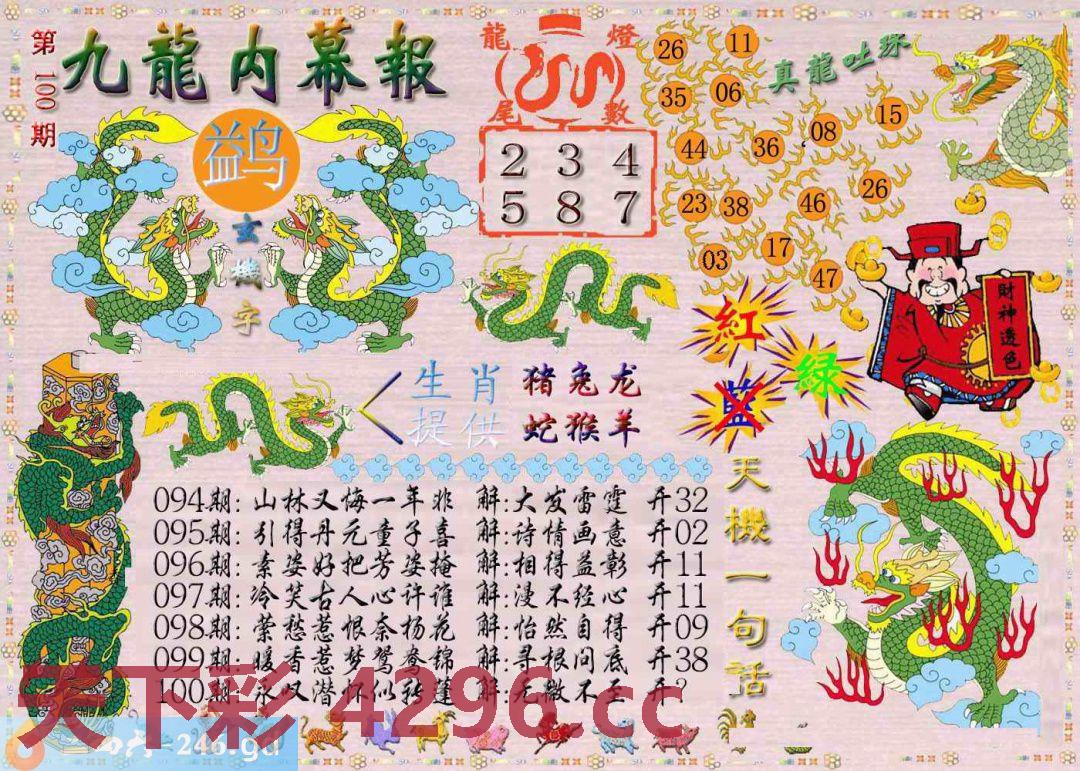 第100期
九龍内幕報
鹢
玄機字
龍燈
尾數
2 3 4
5 8 7
26
11
35
06
44
36
08
15
23
38
46
26
03
17
47
真龍吐珠
財神透色
紅
蓝
緑
生肖 猪兔龙
提供 蛇猴羊
天機一句話
094期: 山林又悔一年非 解:大发雷霆 开32
095期: 引得丹元童子喜 解:诗情画意 开02
096期: 素姿好把芳姿掩 解:相得益彰 开11
097期: 冷笑古人心许谁 解:漫不经心 开11
098期: 萦愁惹恨奈杨花 解:怡然自得 开09
099期: 暖香惹梦鸳鸯锦 解:寻根问底 开38
100期: 永叹潜怀似转蓬 解:无微不至 开?
天下彩 4296.cc
246.gd